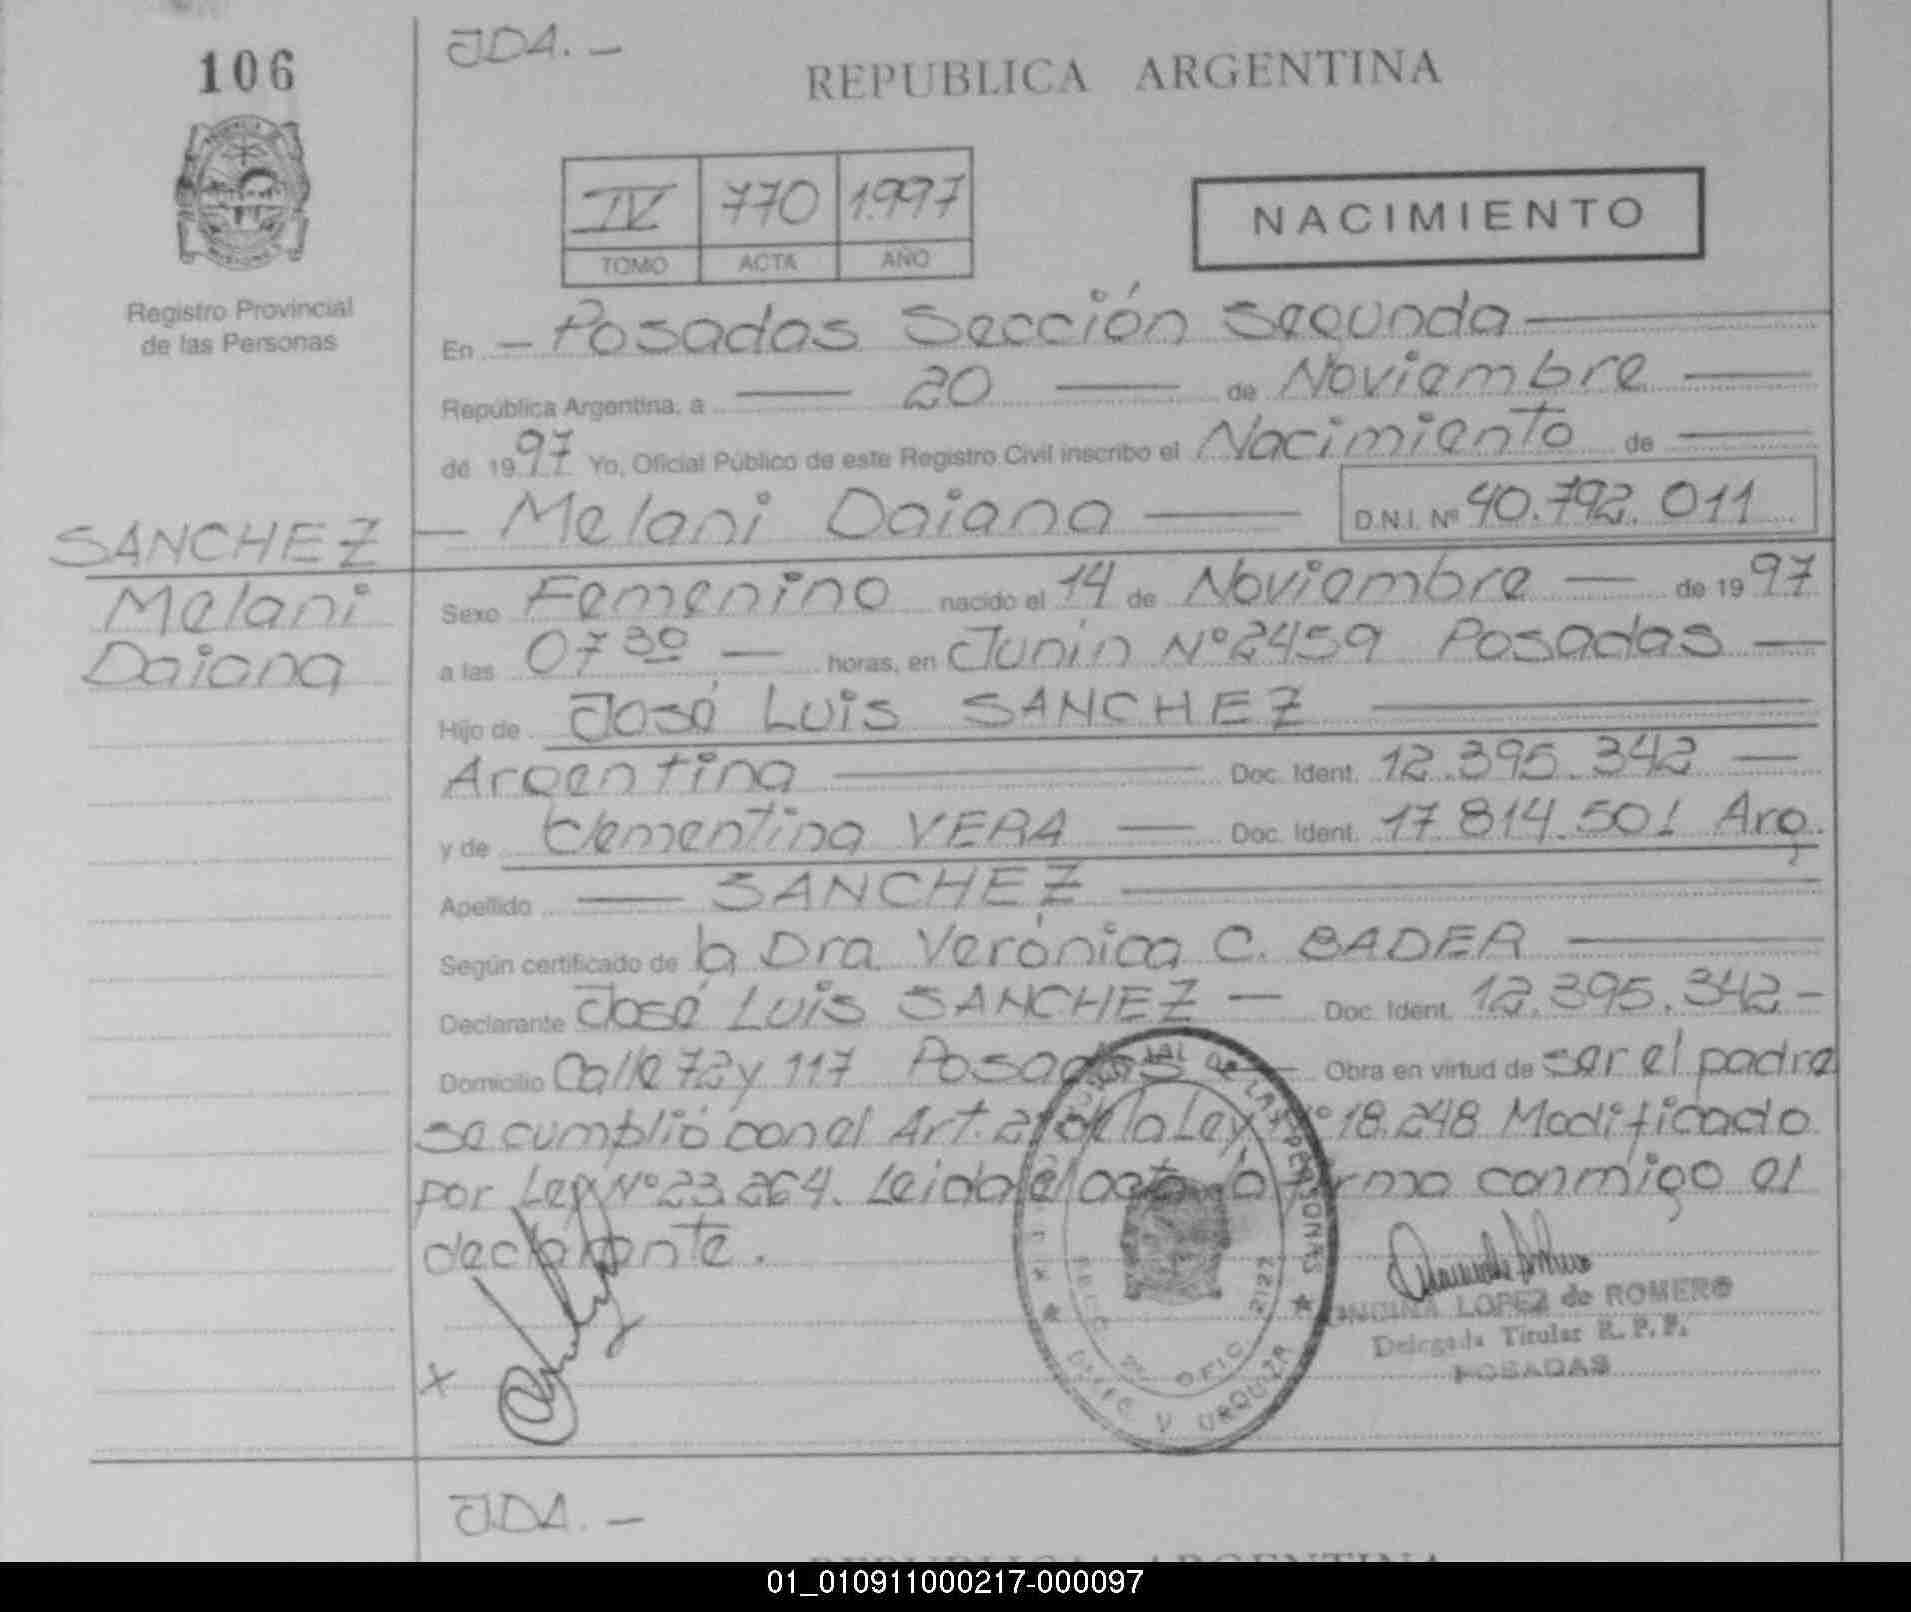 106
JDA. —
REPUBLICA ARGENTINA
IV 770 1.997
TOMO ACTA AÑO
NACIMIENTO
Registro Provincial
de las Personas
En — Posadas Sección Segunda —
República Argentina, a — 20 — de Noviembre —
de 1997 Yo, Oficial Público de este Registro Civil inscribo el Nacimiento de —
SANCHEZ
Melani
Daiana
— Melani Daiana — D.N.I. Nº 40.792.011
Sexo Femenino nacido el 14 de Noviembre — de 1997
a las 07 30 — horas, en Junín Nº 2459 Posadas —
Hijo de José Luis SANCHEZ —
Argentina — Doc. Ident. 12.395.342 —
y de Clementina VERA — Doc. Ident. 17.814.501 Arg.
Apellido — SANCHEZ —
Según certificado de la Dra. Verónica C. BADER —
Declarante José Luis SANCHEZ — Doc. Ident. 12.395.342 —
Domicilio Calle 72 y 117 Posadas — Obra en virtud de ser el padre
se cumplió con el Art. de la Ley Nº 18.248 Modificado
por Ley Nº 23.264. Leida el acta, la firma conmigo el
declarante.
LOPEZ de ROMERO
Delegada Titular R. P. P.
POSADAS
DE LAS PERSONAS
OFIC. 2127
URQUIZA
X
JDA. —
REPUBLICA ARGENTINA
01_010911000217-000097